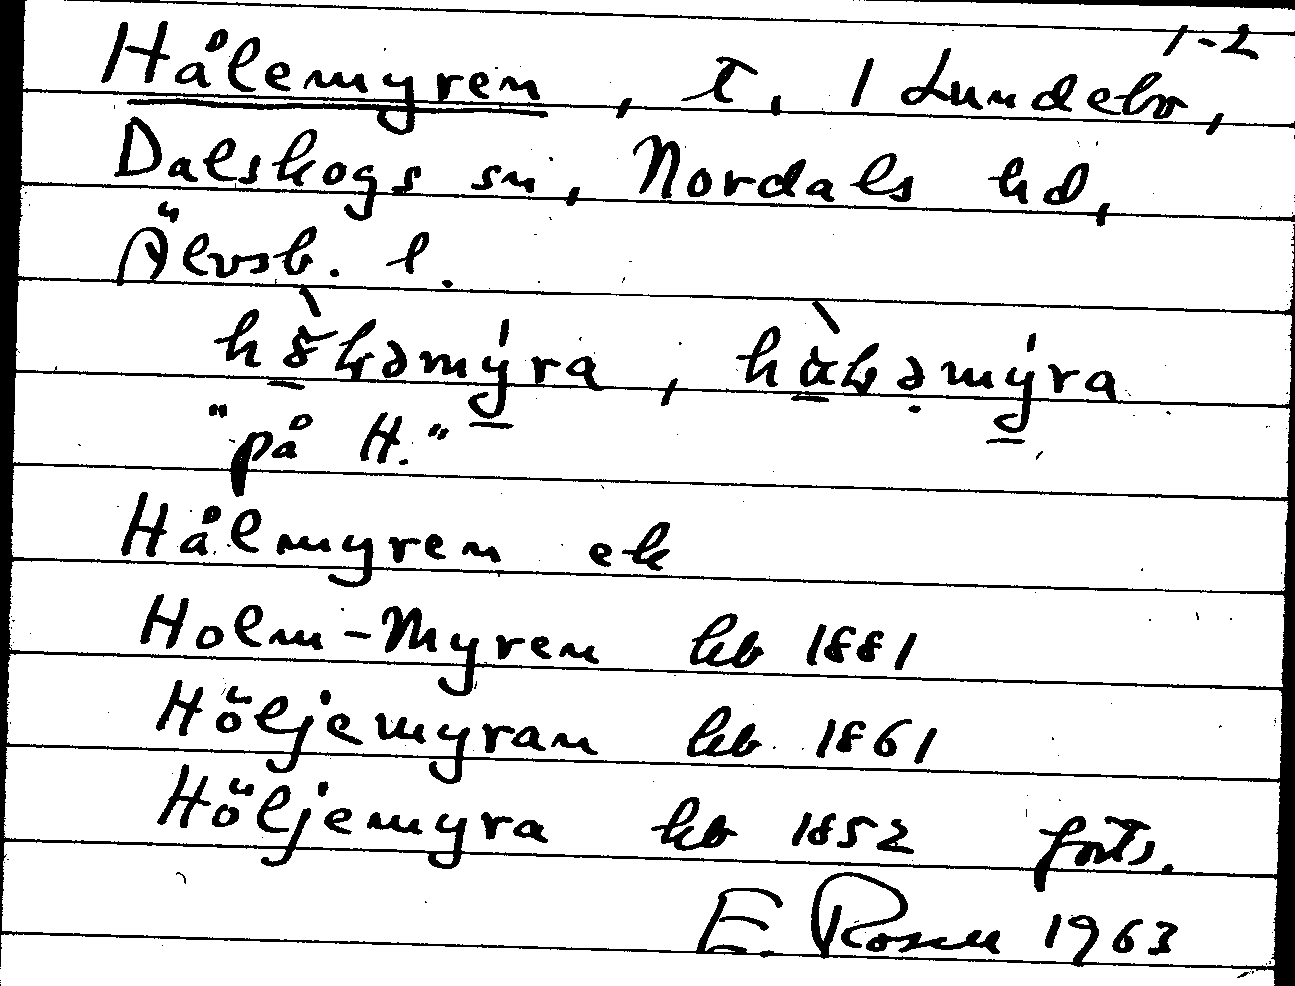 1-2
Hålemyren, t, 1 Lundebo,
Dalskogs sn, Nordals hd,
Älvsb. l.
"på H."
Hålmyren ek
Holm-Myren hb 1881
Höljemyran hb 1861
Höljemyra hb 1852 forts.
E. Rosell 1963